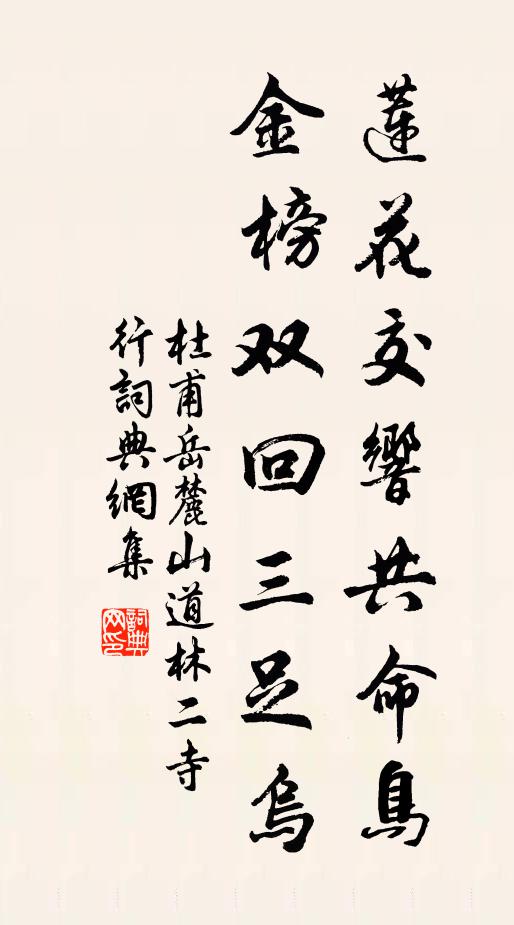 蓮花交響共命鳥
金榜双回三足烏
杜甫岳麓山道林二寺
行詞典網集
詞典
网印